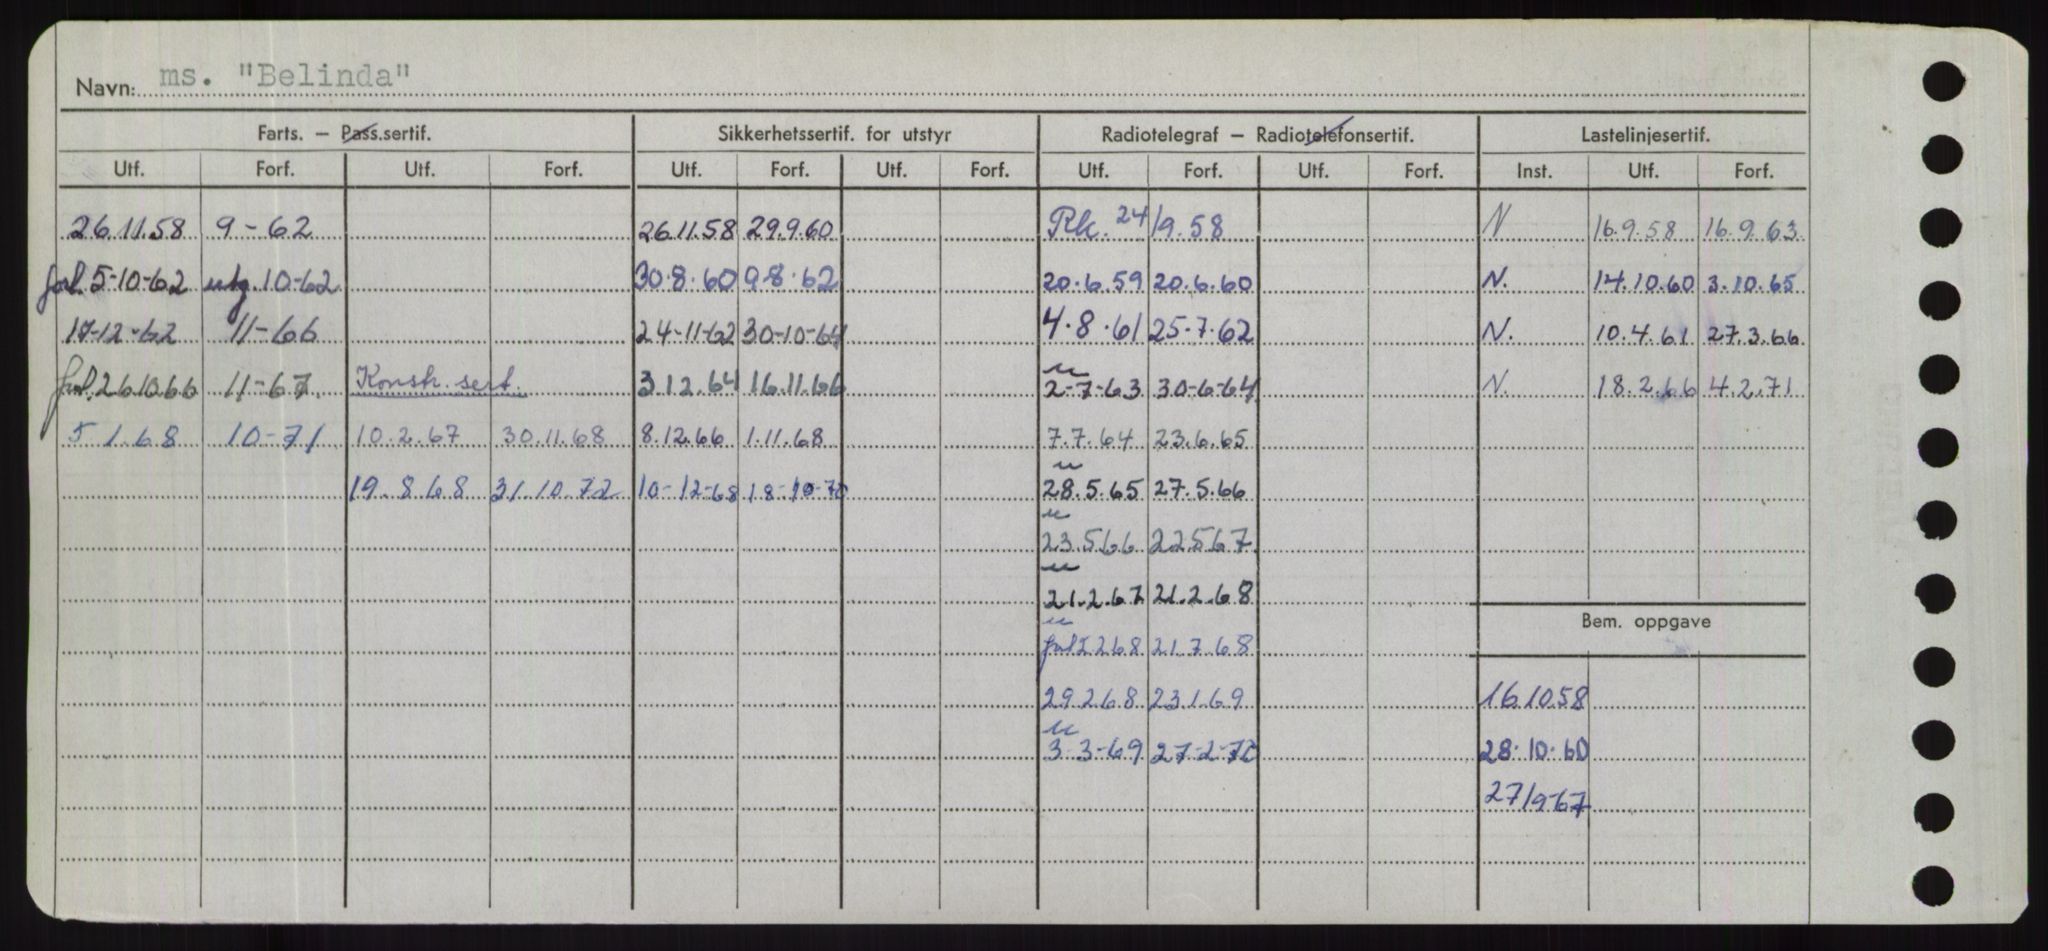 Navn: ms. "Belinda"
Farts. — Pass.sertif. Sikkerhetssertif. for utstyr Radiotelegraf — Radiotelefonsertif. Lastelinjesertif.
Utf. Forf. Utf. Forf. Utf. Forf. Utf. Forf. Utf. Forf. Utf. Forf. Inst. Utf. Forf.
26.11.58 9-62 26.11.58 29.9.60 Rk. 24/9.58 N 16.9.58 16.9.63
forl. 5-10-62 utg. 10-62 30.8.60 9.8.62 20.6.59 20.6.60 N. 14.10.60 3.10.65
17-12-62 11-66 24-11-62 30-10-64 4.8.61 25.7.62 N. 10.4.61 27.3.66
forl. 26.10.66 11-67 Konstr. sert. 3.12.64 16.11.66 2-7-63 30-6-64 N. 18.2.66 4.2.71
5.1.68 10-71 10.2.67 30.11.68 8.12.66 1.11.68 7.7.64 23.6.65
19.8.68 31.10.72 10-12-68 18-10-70 28.5.65 27.5.66
23.5.66 22.5.67
21.2.67 21.2.68
Bem. oppgave
forl 5.2.68 21.7.68
29.2.68 23.1.69 16.10.58
3-3-69 27-2-70 28.10.60
27/9-67